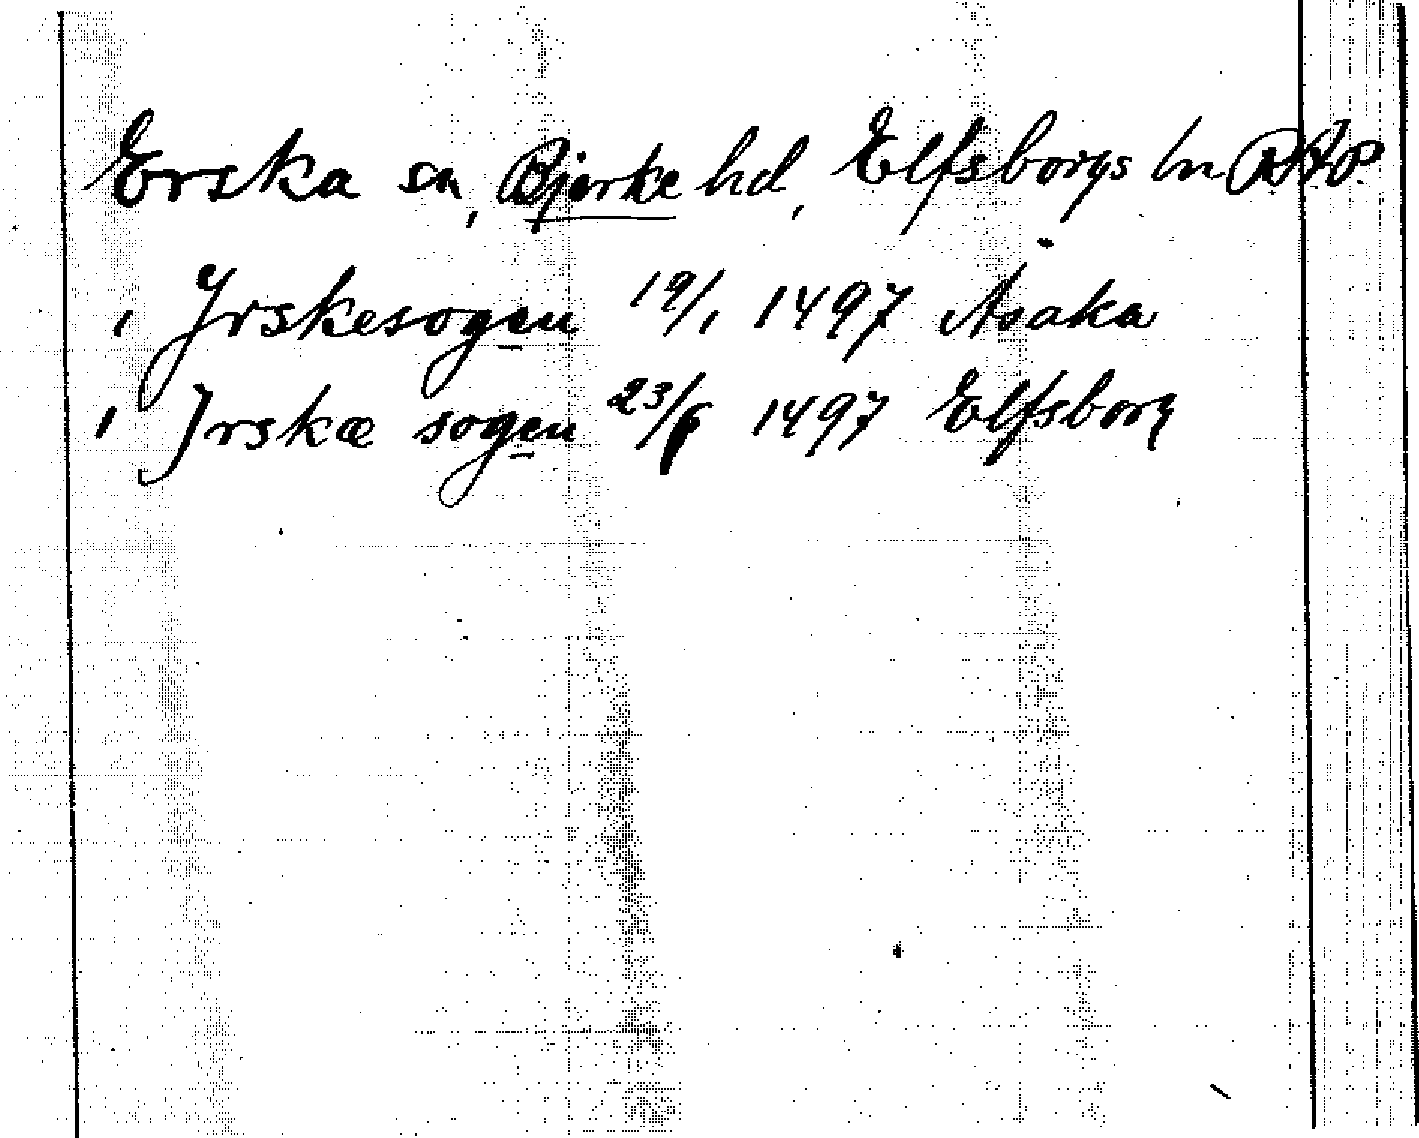 Erska sn, Bjerke hd, Elfsborgs ln RAP
i Yrskesogen 19/1 1497 Åsaka
i Jrskæ sogen 23/6 1497 Elfsborg